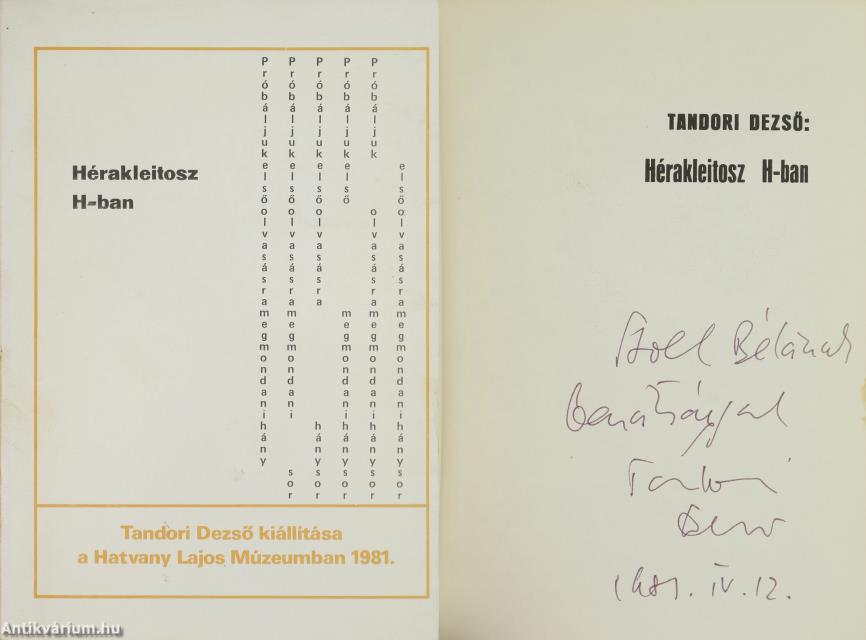 Hérakleitosz
H-ban
Próbáljukelsőolvasásramegmondanihány
Próbáljukelsőolvasásramegmondani sor
Próbáljukelsőolvasásra hánysor
Próbáljukelső megmondanihánysor
Próbáljuk olvasásramegmondanihánysor
elsőolvasásramegmondanihánysor
Tandori Dezső kiállítása
a Hatvany Lajos Múzeumban 1981.
TANDORI DEZSŐ:
Hérakleitosz H-ban
Stoll Bélának
barátsággal
Tandori
Dezső
1981. IV. 12.
Antikvárium.hu